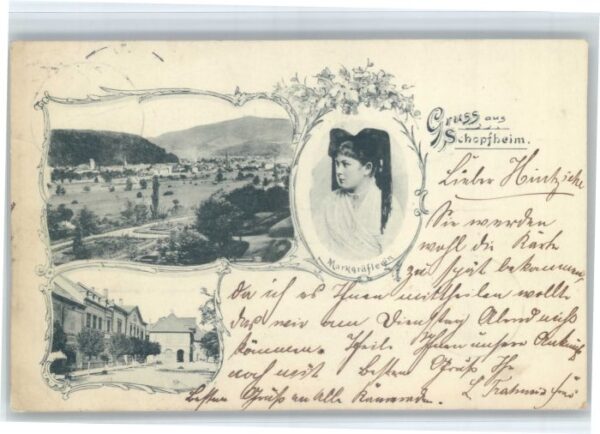 Gruss aus
Schopfheim.
Markgräflerin
Lieber Hintzsche
Sie werden
wohl die Karte
zu spät bekommen,
da ich es Ihnen mittheilen wollte
daß wir am Dienstag Abend nicht
kommen. Theile Ihnen unsere
noch mit besten Gruß Ihr
L
besten Gruß an Alle Kameraden.